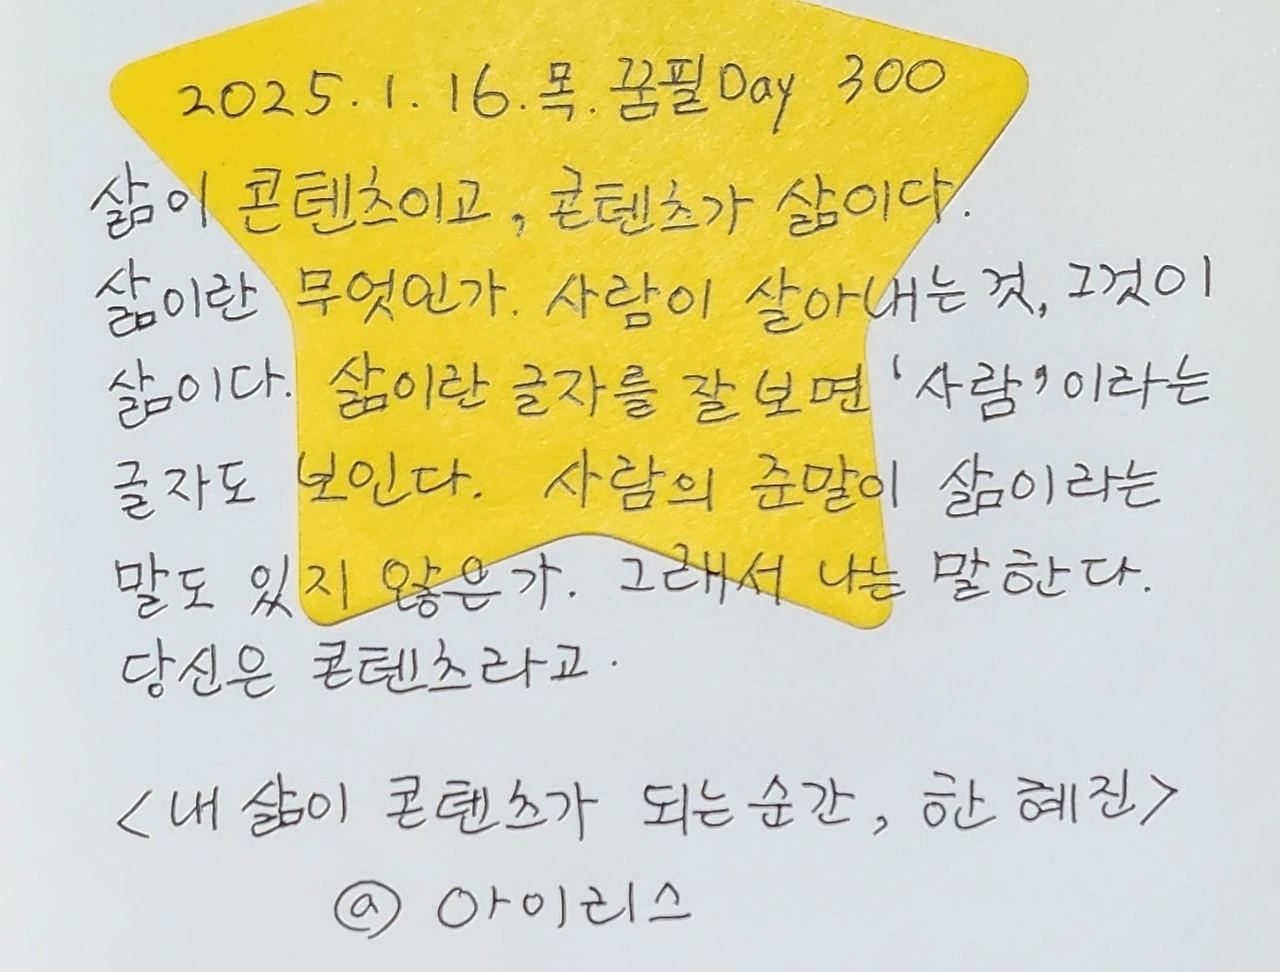 2025. 1. 16. 목. 꿈필Day 300
삶이 콘텐츠이고, 콘텐츠가 삶이다.
삶이란 무엇인가. 사람이 살아내는 것, 그것이
삶이다. 삶이란 글자를 잘 보면 '사람'이라는
글자도 보인다. 사람의 준말이 삶이라는
말도 있지 않은가. 그래서 나는 말한다.
당신은 콘텐츠라고.
<내 삶이 콘텐츠가 되는 순간, 한혜진>
@ 아이리스